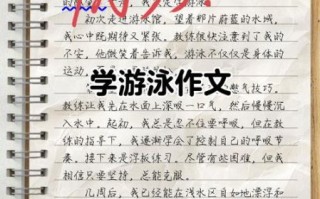 初次走进游泳馆，望着那片蔚蓝的水域，
我心中既期待又紧张。教练很快注意到了我的
不安，他微笑着告诉我，游泳不仅仅是身体的
运动，
学游泳作文
换气技巧。
教练让我先在水面上深吸一口气，然后慢慢沉
入水中。起初，我总是忍不住要呼吸，但在教
练的指导下，我逐渐学会了控制自己的呼吸节
奏。接下来是浮板练习。尽管有些困难，但我
相信只要坚持，总能克服。
几周后，我已经能在浅水区自如地漂浮和